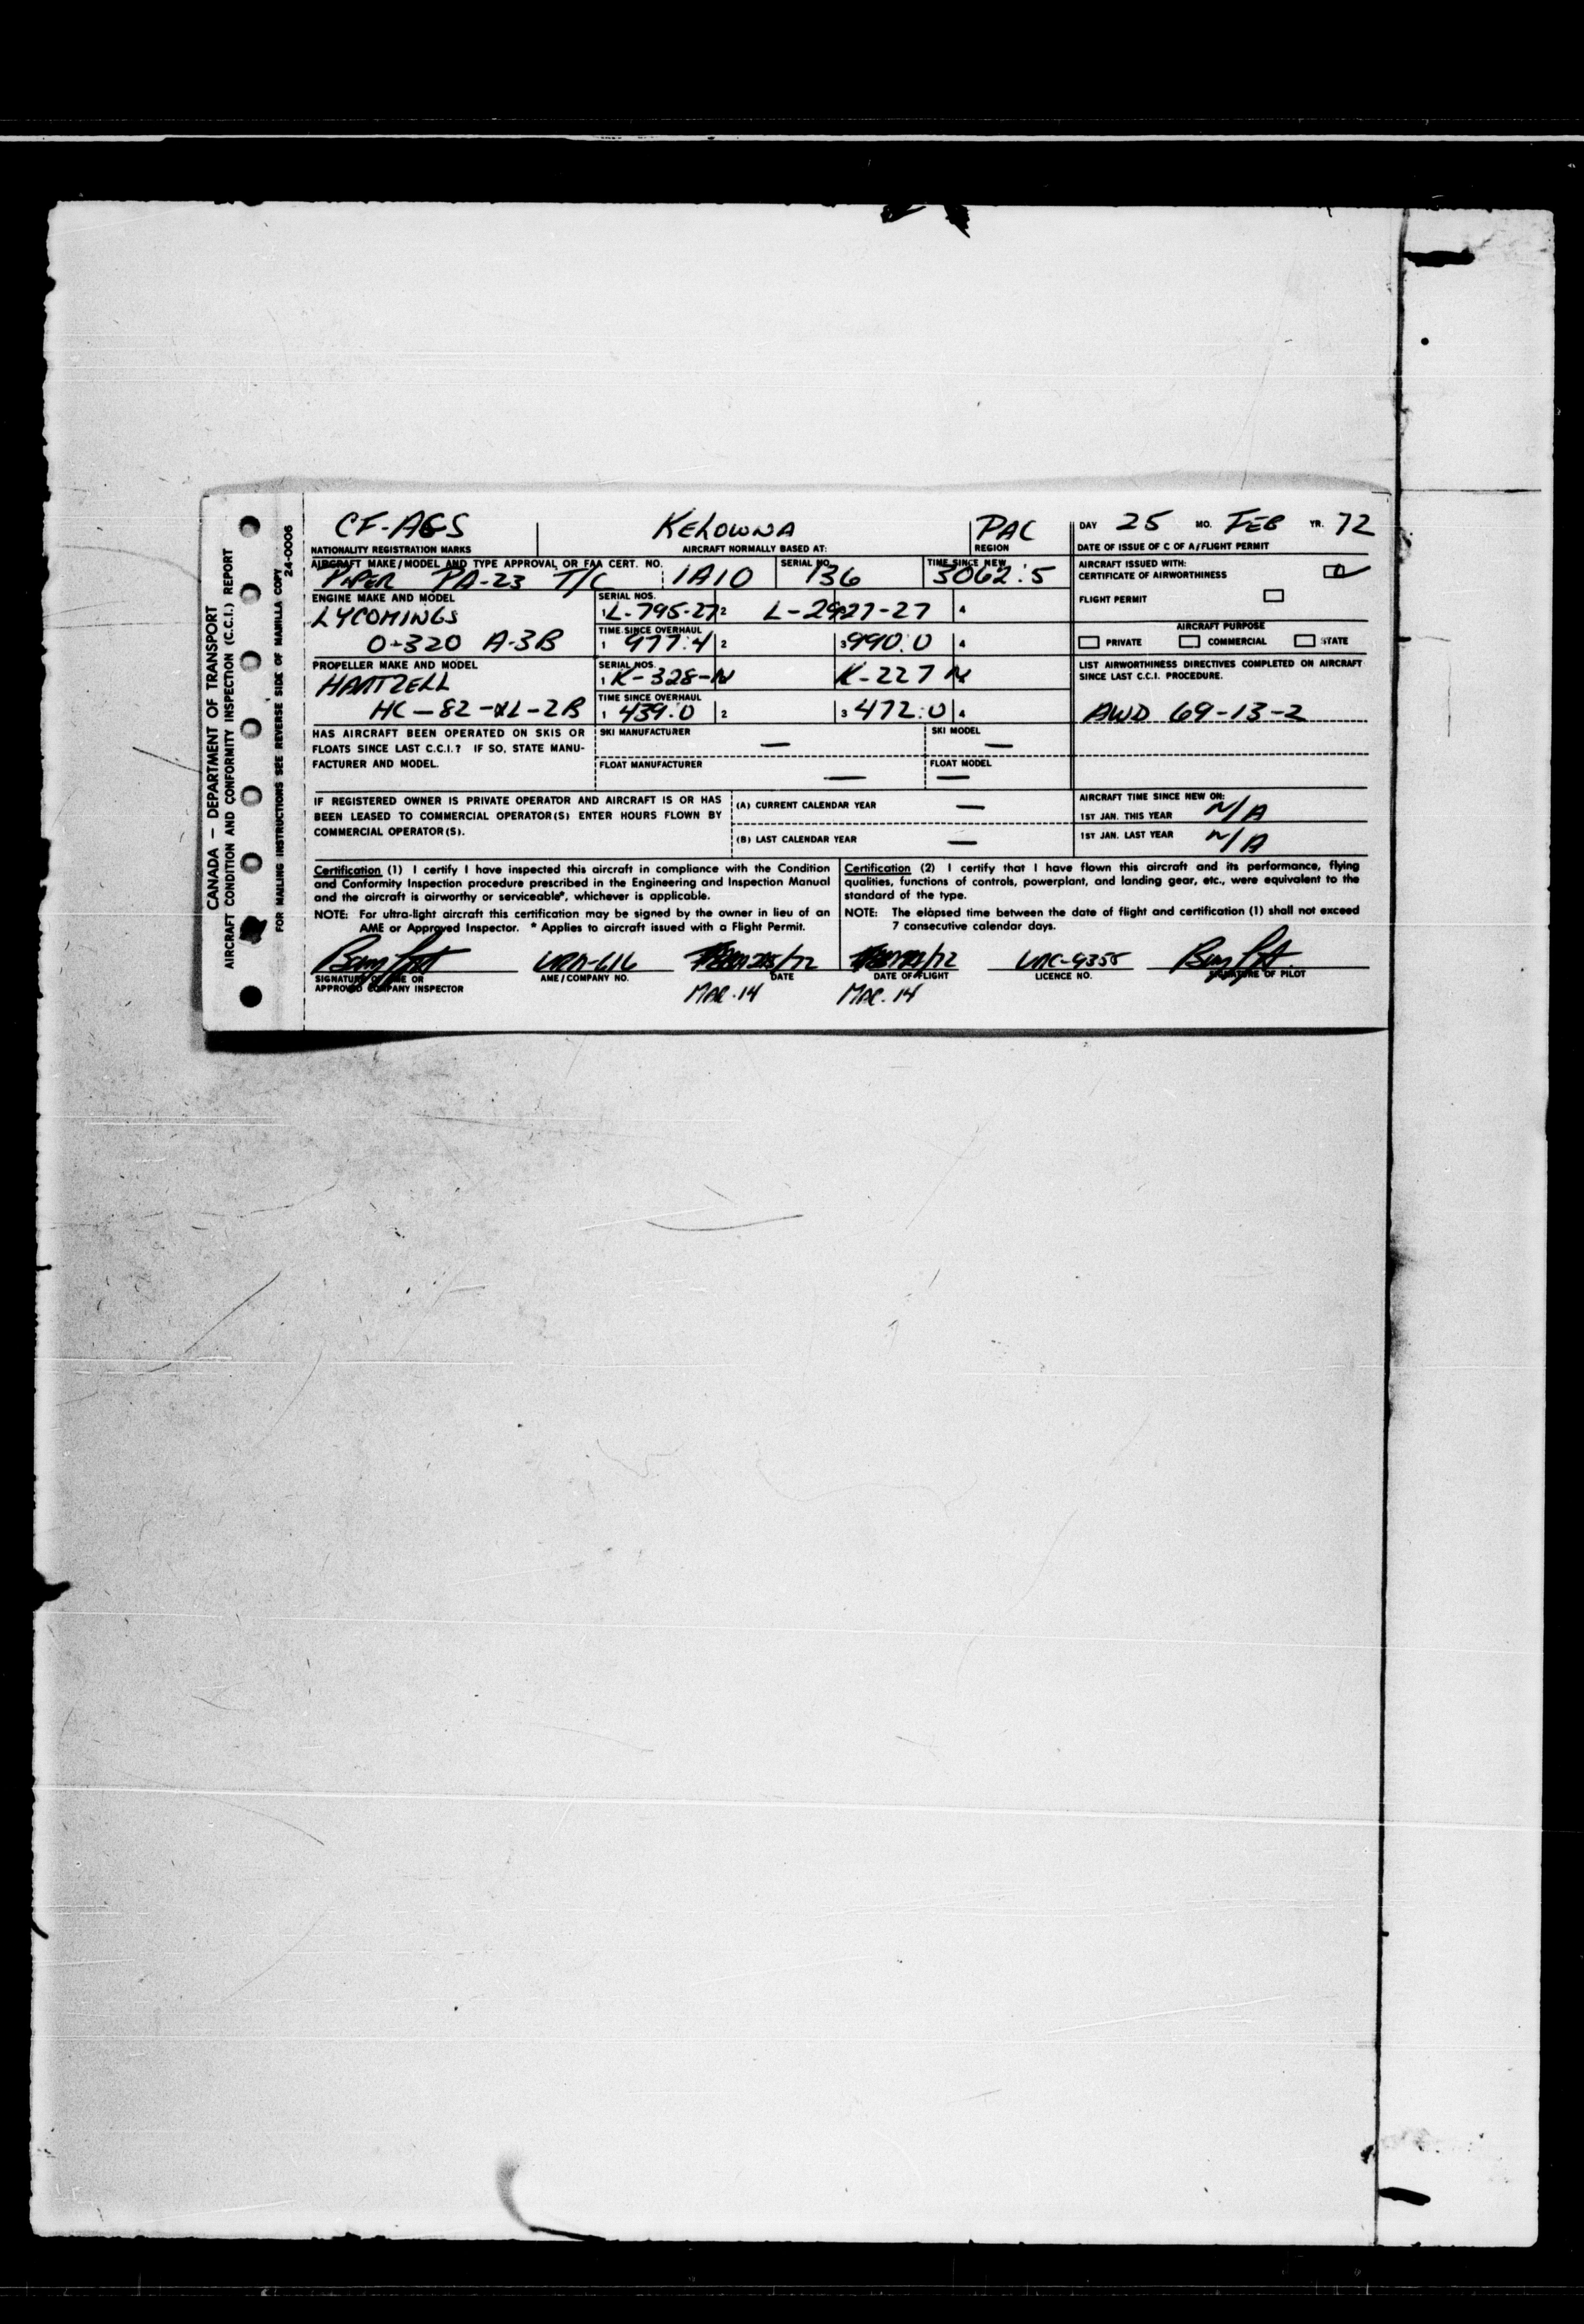 CANADA — DEPARTMENT OF TRANSPORT
AIRCRAFT CONDITION AND CONFORMITY INSPECTION (C.C.I.) REPORT
FOR MAILING INSTRUCTIONS SEE REVERSE SIDE OF MANILLA COPY
24-0006
CF-AGS KELOWNA PAC DAY 25 MO. FEB YR. 72
NATIONALITY REGISTRATION MARKS AIRCRAFT NORMALLY BASED AT: REGION DATE OF ISSUE OF C OF A/FLIGHT PERMIT
AIRCRAFT MAKE/MODEL AND TYPE APPROVAL OR FAA CERT. NO. SERIAL NO. TIME SINCE NEW AIRCRAFT ISSUED WITH:
PIPER PA-23 T/C 1A10 136 3062:5 CERTIFICATE OF AIRWORTHINESS
ENGINE MAKE AND MODEL SERIAL NOS. FLIGHT PERMIT
LYCOMINGS 1 L-795-27 2 L-2927-27 4
TIME SINCE OVERHAUL AIRCRAFT PURPOSE
O-320 A-3B 1 977:4 2 3 990:0 4 PRIVATE COMMERCIAL STATE
PROPELLER MAKE AND MODEL SERIAL NOS. LIST AIRWORTHINESS DIRECTIVES COMPLETED ON AIRCRAFT
HARTZELL 1 K-328-N K-227 N SINCE LAST C.C.I. PROCEDURE.
TIME SINCE OVERHAUL
HC-82-XL-2B 1 439:0 2 3 472:0 4 AWD 69-13-2
HAS AIRCRAFT BEEN OPERATED ON SKIS OR SKI MANUFACTURER SKI MODEL
FLOATS SINCE LAST C.C.I.? IF SO, STATE MANU- — —
FACTURER AND MODEL. FLOAT MANUFACTURER FLOAT MODEL
— —
IF REGISTERED OWNER IS PRIVATE OPERATOR AND AIRCRAFT IS OR HAS (A) CURRENT CALENDAR YEAR — AIRCRAFT TIME SINCE NEW ON:
BEEN LEASED TO COMMERCIAL OPERATOR(S) ENTER HOURS FLOWN BY 1ST JAN. THIS YEAR N/A
COMMERCIAL OPERATOR(S). (B) LAST CALENDAR YEAR — 1ST JAN. LAST YEAR N/A
Certification (1) I certify I have inspected this aircraft in compliance with the Condition
and Conformity Inspection procedure prescribed in the Engineering and Inspection Manual
and the aircraft is airworthy or serviceable*, whichever is applicable.
NOTE: For ultra-light aircraft this certification may be signed by the owner in lieu of an
AME or Approved Inspector. * Applies to aircraft issued with a Flight Permit.
Certification (2) I certify that I have flown this aircraft and its performance, flying
qualities, functions of controls, powerplant, and landing gear, etc., were equivalent to the
standard of the type.
NOTE: The elapsed time between the date of flight and certification (1) shall not exceed
7 consecutive calendar days.
SIGNATURE OF AME OR AME/COMPANY NO. DATE DATE OF FLIGHT LICENCE NO. SIGNATURE OF PILOT
APPROVED COMPANY INSPECTOR MAR. 14 MAR. 14